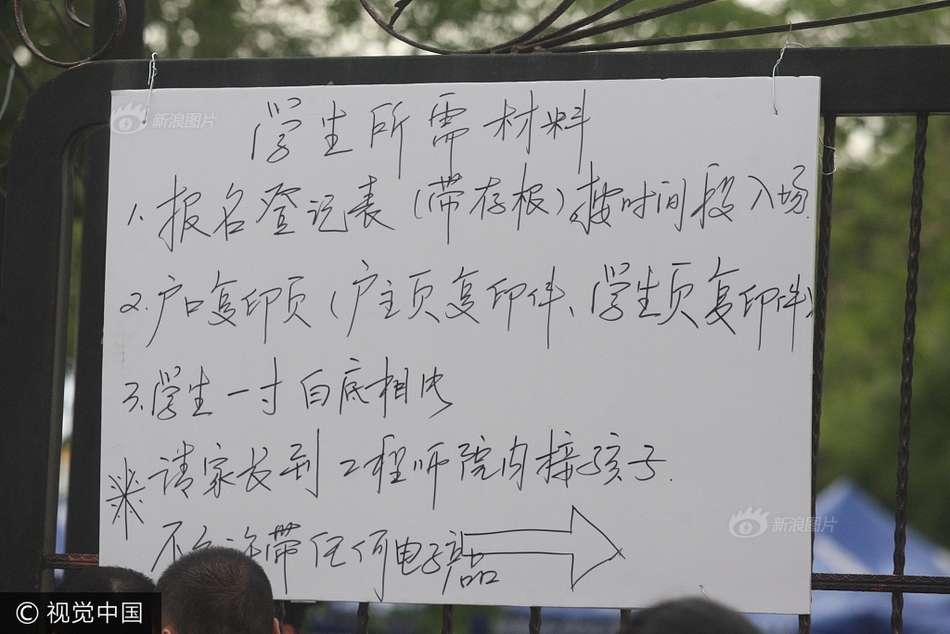 学生所需材料
1.报名登记表(带存根)按时间段入场.
2.户口复印页(户主页复印件、学生页复印件)
3.学生一寸白底相片
※请家长到工程师院内接孩子.
不允许带任何电子产品
新浪图片
新浪图片
© 视觉中国